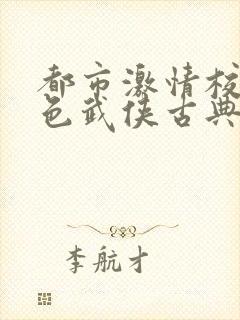 都市激情校
色武侠古典
李航才